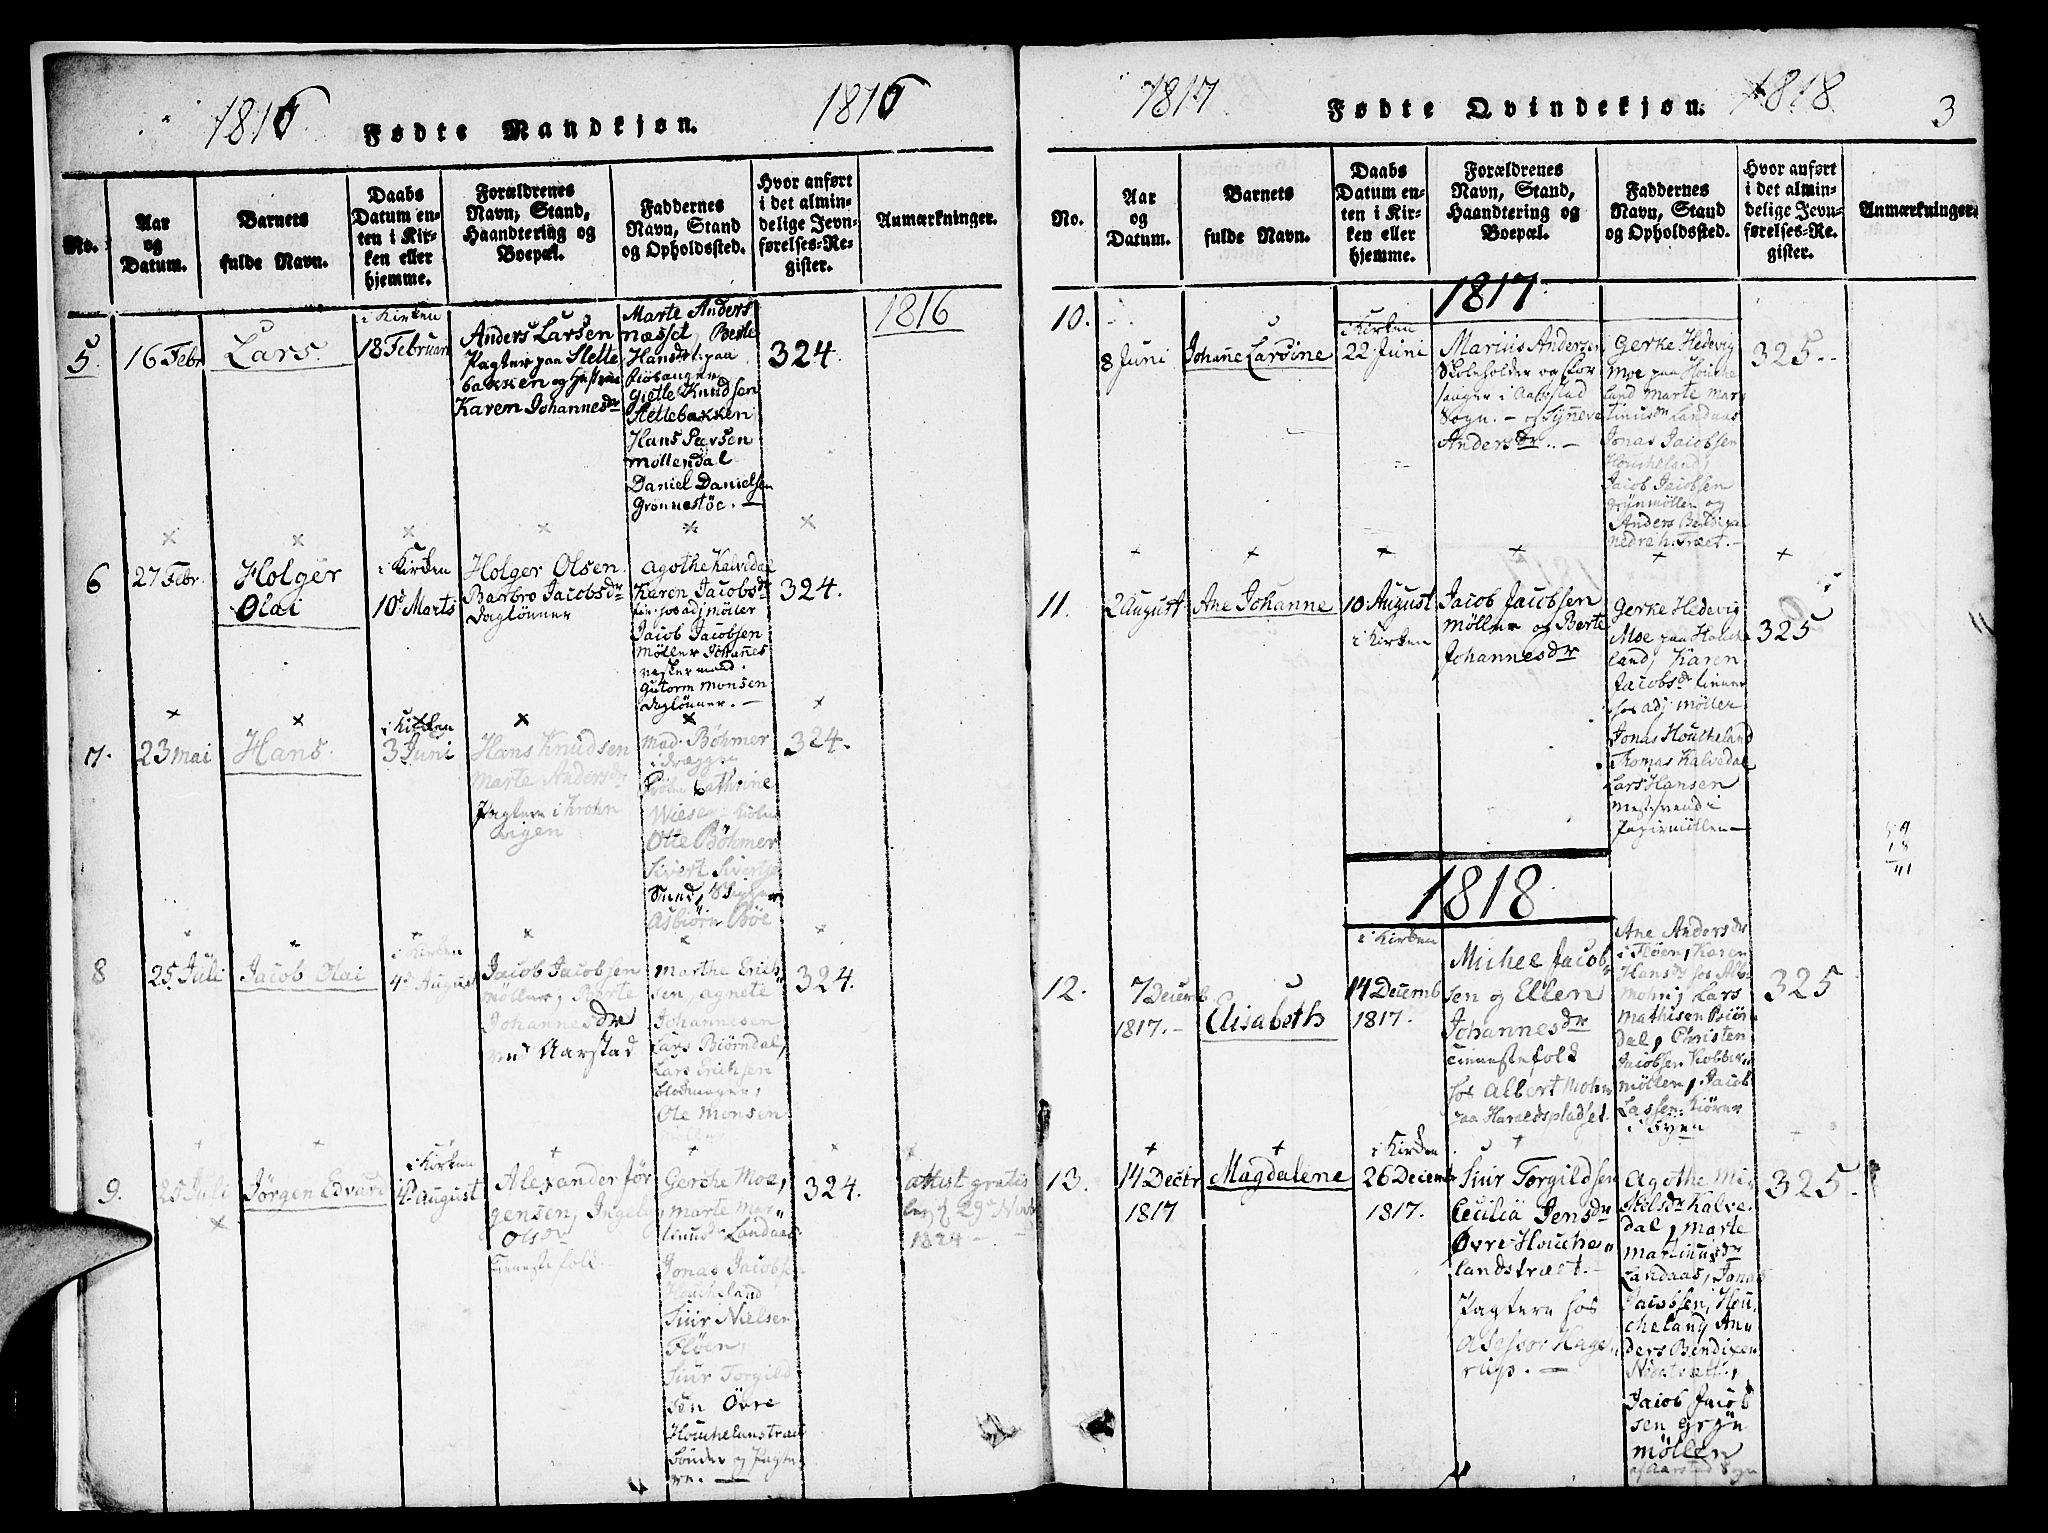 1816
Fødte Mandkjøn.
1816
No.
Aar
og
Datum.
Barnets
fulde Navn.
Daabs
Datum en-
ten i Kir-
ken eller
hjemme.
Forældrenes
Navn, Stand,
Haandtering og
Boepæl.
Faddernes
Navn, Stand
og Opholdssted.
Hvor anført
i det almin-
delige Jevn-
førelses-Re-
gister.
Anmærkninger.
1816
5.
16 Febr
Lars.
i Kirken
18 Februar
Anders Larsen
Pagter paa Slette
bakken og Hustrue
Karen Johannesdr
Marte Anders
næsset, Berte
Hansdr. paa
Fiøsanger
Gietle Knudsen
Slettebakken
Hans Peersen
Møllendal
Daniel Danielsen
Grønnestøe. —
324
6
27 Febr.
Holger
Olai
i Kirken
10de Marts
Holger Olsen
Barbro Jacobsdr
Daglønner
Agothe Kalvedal
Karen Jacobsdr
hos adj Møller
Jacob Jacobsen
Møller Johannes
Gutorm Monsen
Daglønner. —
324.
7.
23 Mai
Hans.
i Kirken
3 Juni
Hans Knudsen
Marte Andersdr
Pagtere i Krohn
vigen
Mad. Böhmer
i Dræggen
Cathrine
Wiese
Otte Böhmer
Sivert Siverts
Smed,
Asbiørn Bøe
324.
8
25 Juli
Jacob Olai
i Kirken
4de August
Jacob Jacobsen
Møller, Berte
Johannesdr
ved Aarstad
Marthe Erich
sen, Agnete
Johannesen
Lars Biørndal,
Lars Erichsen
Ole Monsen
Møller
324.
9.
25 Juli
Jørgen Edvard
i Kirken
4de August
Alexander Jør
gensen, Ingeb
Olsdr
Tienestefolk.
Gerche Moe,
Marte Mar-
tinusdr Landaas
Jonas Jacobsen
Houcheland
Siur Nielsen
Fløen,
Siur Torgild
sen Øvre
Houchelanstræt
Bønder og Pagte
re. —
324.
attest gratis
29de Novb
1824 —
1817
Fødte Qvindekjøn.
1818
3
No.
Aar
og
Datum.
Barnets
fulde Navn.
Daabs
Datum en-
ten i Kir-
ken eller
hjemme.
Forældrenes
Navn, Stand,
Haandtering og
Boepæl.
Faddernes
Navn, Stand
og Opholdssted.
Hvor anført
i det almin-
delige Jevn-
førelses-Re-
gister.
Anmærkninger.
1817
10.
8 Juni
Johanne Larsine
i Kirken
22 Juni
Marius Andersen
Skoleholder og For
sanger i Aarstad
Sogn. — og Synneve
Andersdr. —
Gerke Hedevig
Moe paa Houche
land Marte Mar
tinusdr Landaas
Jonas Jacobsen
Houcheland,
Jacob Jacobsen
Grynmøllen og
Anders Bendixen
Nedreh. Træet. —
325.
11.
2 August
Ane Johanne
10 August
i Kirken
Jacob Jacobsen
Møller og Berte
Johannesdr
Gerke Hedevig
Moe paa Houche
land, Karen
Jacobsdr tiener
hos adj Møller
Jonas Houcheland
Tomas Kalvedal
Lars Hansen
Mestersvend i
Papirmøllen —
325
1818
12.
7 Decemb
1817. —
Elisabeth
i Kirken
14 Decemb
1817.
Michel Jacob
sen og Ellen
Johannesdr
Tienestefolk
hos Albert Mohn
paa Haraldspladset
Ane Andersdr
i Fløen, Karen
Hansdr hos Alb.
Mohn, Lars
Mathisen Biørn
dal, Christen
Jacobsen Kobber
møllen, Jacob
Lassen Kiører
i Byen
325
13.
14 Decbr
1817
Magdalene
i Kirken
26 Decemb
1817.
Siur Torgildsen
Cecilia Jensdr
Øvre Houche-
landstræet —
Pagtere hos
Asessor Hage
rup. —
Agothe Mic
kelsdr Kalve
dal, Marte
Martinusdr
Landaas, Jonas
Jacobsen, Hou
cheland, An
ders Bendixen
Nedstræet,
Jacob Jacob
sen Gryn
møllen
af Aarstad Sogn
325.